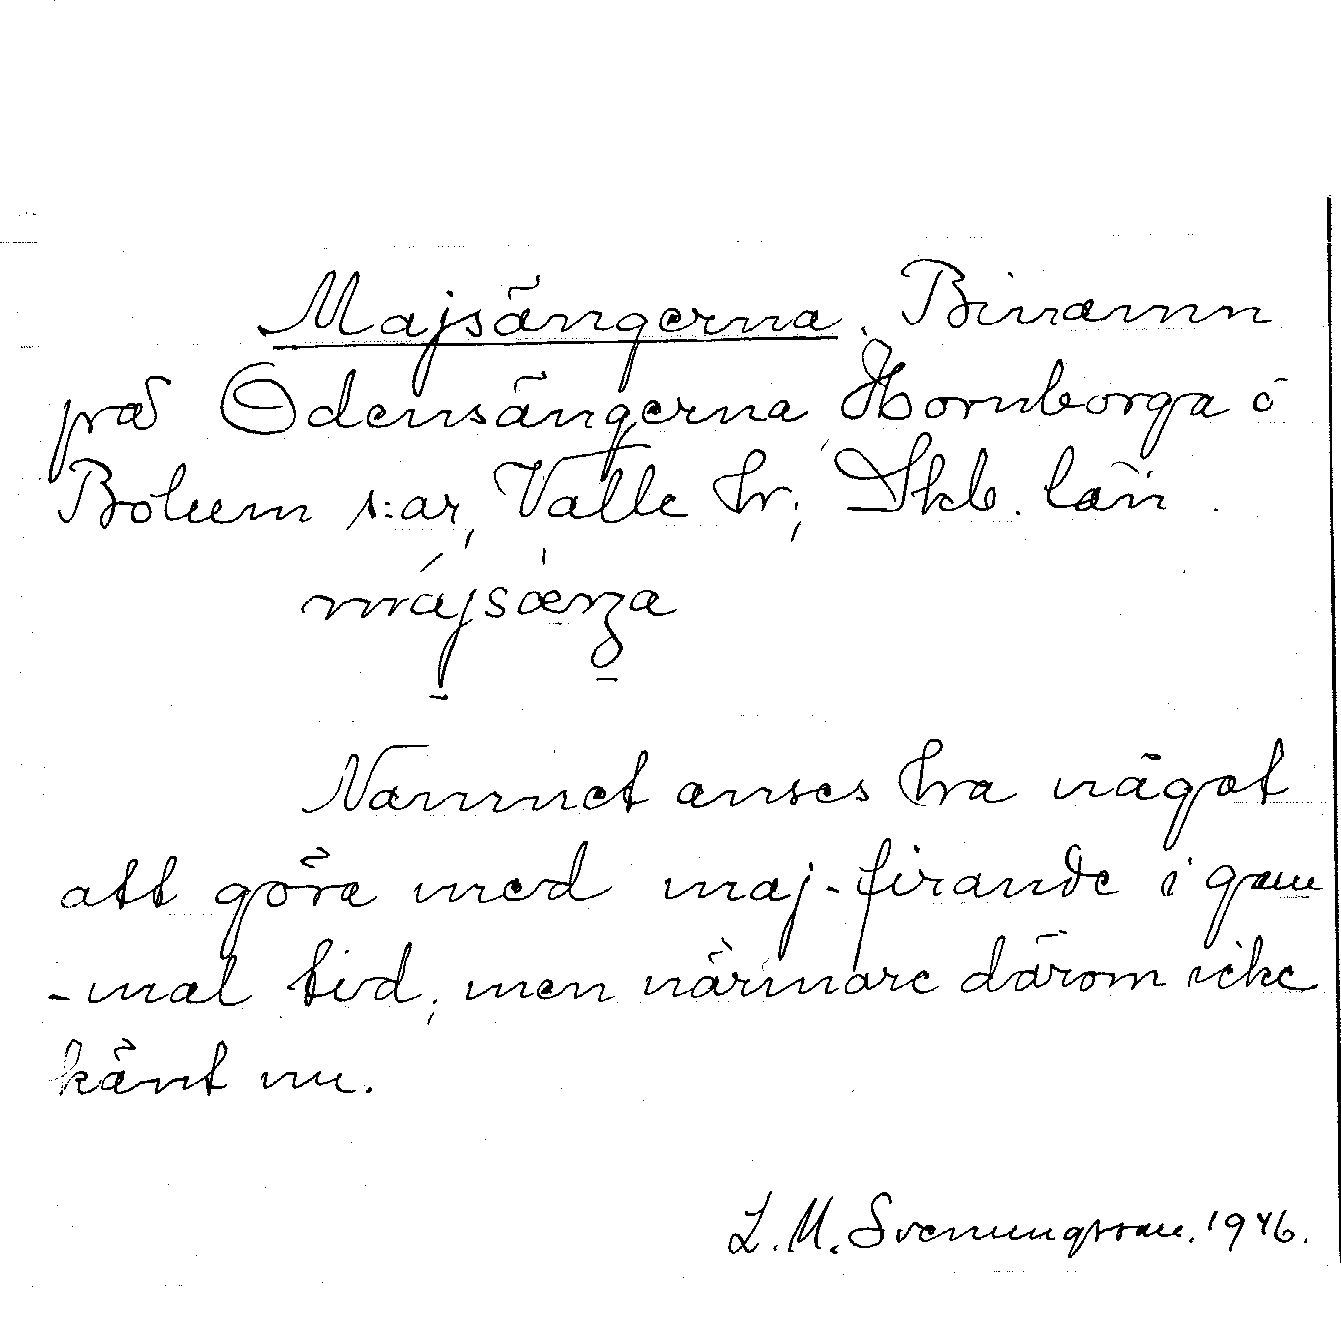 Majsängerna. Binamn
på Odensängerna, Hornborga o
Bolum s:ar, Valle hr, Skb. län.
májsæŋa
Namnet anses ha något
att göra med maj-firande i gam
-mal tid, men närmare därom icke
känt nu.
L. M. Svenungsson. 1946.